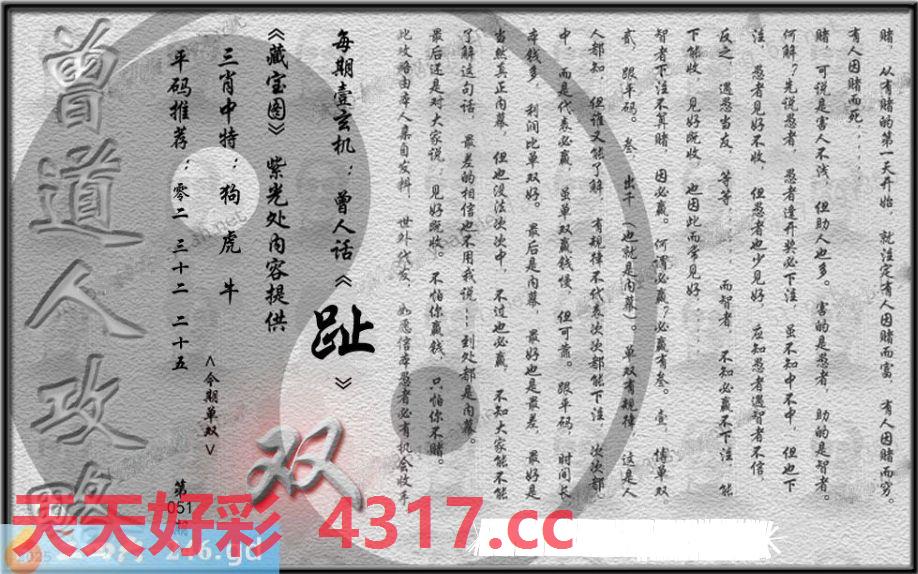 赌，从有赌的第一天开始，就注定有人因赌而富，有人因赌而穷。
有人因赌而死．．．．．．
赌，可说是害人不浅，但助人也多。害的是愚者，助的是智者。
何解？先说愚者，愚者逢开奖必下注，虽不知中不中，但也下
注，愚者见好不收，但愚者也少见好，应知愚者遇智者不信，
反之，遇愚当友，等等．．．，而智者，不知必赢不下注，能
下能收，见好既收，也因此而常见好．．．
智者下注不算赌，因必赢。何谓必赢？必赢有叁。壹，博单双
贰，跟平码。叁，出千（也就是内幕）。单双有规律，这是人
人都知，但谁又能了解，有规律不代表次次都能下注，次次都
中，而是代表必赢，虽单双赢钱慢，但可靠。跟平码，时间长
本钱多，利润比单双好。最后是内幕，最好也是最差，最好是
当然真正内幕，但也没法次次中，不过也必赢，不知大家能不能
了解这句话，最差的相信也不用我说．．．到处都是内幕。
最后还是对大家说：见好既收。不怕你赢钱，只怕你不赌。
此攻略由本人亲自发料，世外代发，如愿信本愚者必有机会收手
每期壹玄机：曾人话《趾》
《藏宝图》紫光处内容提供
三肖中特：狗虎牛
<今期单双>
双
平码推荐：零二 三十二 二十五
第
051
期
曾道人攻略
天天好彩 4317.cc
246.gd